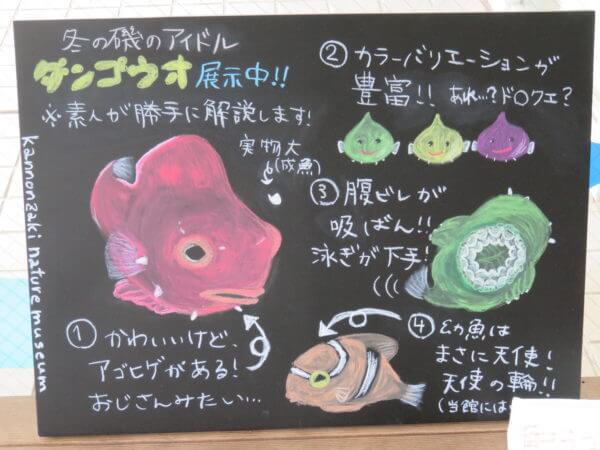 冬の磯のアイドル
ダンゴウオ展示中!!
※素人が勝手に解説します!
実物大
(成魚)
kannonzaki nature museum
① かわいいけど、
アゴヒゲがある!
おじさんみたい…
② カラーバリエーションが
豊富!! あれ…?ド○クエ?
③ 腹ビレが
吸ばん!!
泳ぎが下手!
④ 幼魚は
まさに天使!
天使の輪!!
(当館には